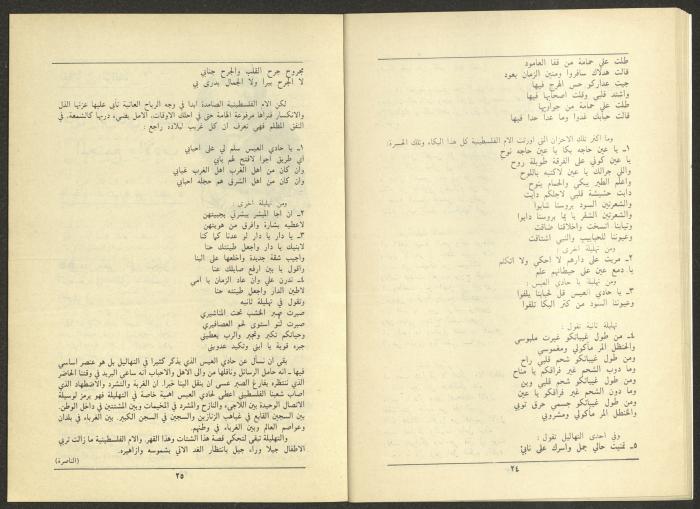 طلت علي حمامة من قفا العامود
قالت هدلاك سافروا ومنين الزمان يعود
جيت عداركو حس الهرج فيها
واشتد قلبي وقلت اصحابها فيها
طلت علي حمامة من حواريها
قالت حبابك غدوا وما عدا حدا فيها
وما اكثر تلك الاحزان التي اورثت الام الفلسطينية كل هذا البكاء وتلك الحسرة:
١ـ يا عين حاجه بكا يا عين حاجه نوح
يا عين كوني على الفرقة طويلة روح
واللي جرالك يا عين لاكتبه باللوح
واعلم الطير يبكي والحمام ينوح
دابت حشيشة قلبي لاجلكم دابت
والشعرتين السود بروسنا شابوا
والشعرتين الشقر يا يما بروسنا دابوا
وثيابنا اتسخت واخلاقنا ضاقت
وعيوننا للحبايب والنبي اشتاقت
ومن تهليلة اخرى :
٢ـ مريت على دارهم لا احكي ولا اتكلم
يا دمع عين على حيطانهم علم
ومن تهليلة يا حادي العيس :
٣ـ يا حادي العيس قل لحبابنا يلفوا
وعيوننا السود من كثر البكا تلفوا
تهليلة ثانية تقول :
٤ـ من طول غيبانكو غيرت ملبوسي
والحنظل المر مأكولي ومغموسي
ومن طول غيبانكو شحم قلبي راح
وما دوب الشحم غير فراقكم يا مناح
ومن طول غيبانكو شحم قلبي وين
وما دون الشحم غير فراقكو يا عين
ومن طول غيبانكو جسمي حرق ثوبي
والحنظل المر مأكولي ومشروبي
وفي احدى التهاليل تقول :
٥ـ تمنيت حالي جمل واسرك على نابي
٢٤
مجروح جرح القلب والجرح جنابي
لا الجرح يبرا ولا الجمال يدرى بي
لكن الام الفلسطينية الصامدة ابدا في وجه الرياح العاتية تأبى عليها عزتها الذل
والانكسار فنراها مرفوعة الهامة حتى في احلك الاوقات، الامل يضيء دربها كالشمعة، في
النفق المظلم فهي تعرف ان كل غريب لبلاده راجع :
١ـ يا حادي العيس سلم لي على احبابي
اي طريق اجوا لافتح لهم بابي
وان كان من اهل الغرب اهل الغرب غيابي
وان كان من اهل الشرق هم حجله احبابي
ومن تهليلة اخرى :
٢ـ ان اجا المبشر يبشرني بجيبتهن
لاعطيه بشارة وافرق من هويتهن
٣ـ يا دار يا دار لو عدنا كما كنا
لابنيك يا دار واجعل طينتك حنا
واجيب شقة جديدة واخلعها على البنا
واقول يا بين ارفع صابلك عنا
٤ـ نذرن علي وان عاد الزمان يا امي
لاطين الدار واجعل طينته حنا
وتقول في تهليلة ثانيه
صبرت صبر الخشب تحت المناشيري
صبرت لنو استوى لحم العصافيري
وحياتكم نكبر ونتجبر والرب يعطيني
جبره قوية يا ابني ونكيد عدويني
بقي ان نسأل عن حادي العيس الذي يذكر كثيرا في التهاليل بل هو عنصر اساسي
فيها ـ انه حامل الرسائل وناقلها من والى الاهل والاحباب انه ساعي البريد في وقتنا الحاضر
الذي ننتظره بفارغ الصبر عسى ان ينقل الينا خبرا. ان الغربة والتشرد والاضطهاد الذي
اصاب شعبنا الفلسطيني اعطى لحادي العيس اهمية خاصة في التهليلة فهو يرمز لوسيلة
الاتصال الوحيدة بين اللاجىء والنازح والمشرد في المخيمات وبين المشتتين في داخل الوطن.
بين السجين القابع في غياهب الزنازين والسجين في السجن الكبير. بين الغرباء في بلدان
وعواصم العالم وبين الغرباء في وطنهم.
والتهليلة تبقى لتحكي قصة هذا الشتات وهذا القهر والام الفلسطينية ما زالت تربي
الاطفال جيلا وراء جيل بانتظار الغد الاتي بشموسه وازاهيره.
(الناصرة)
٢٥